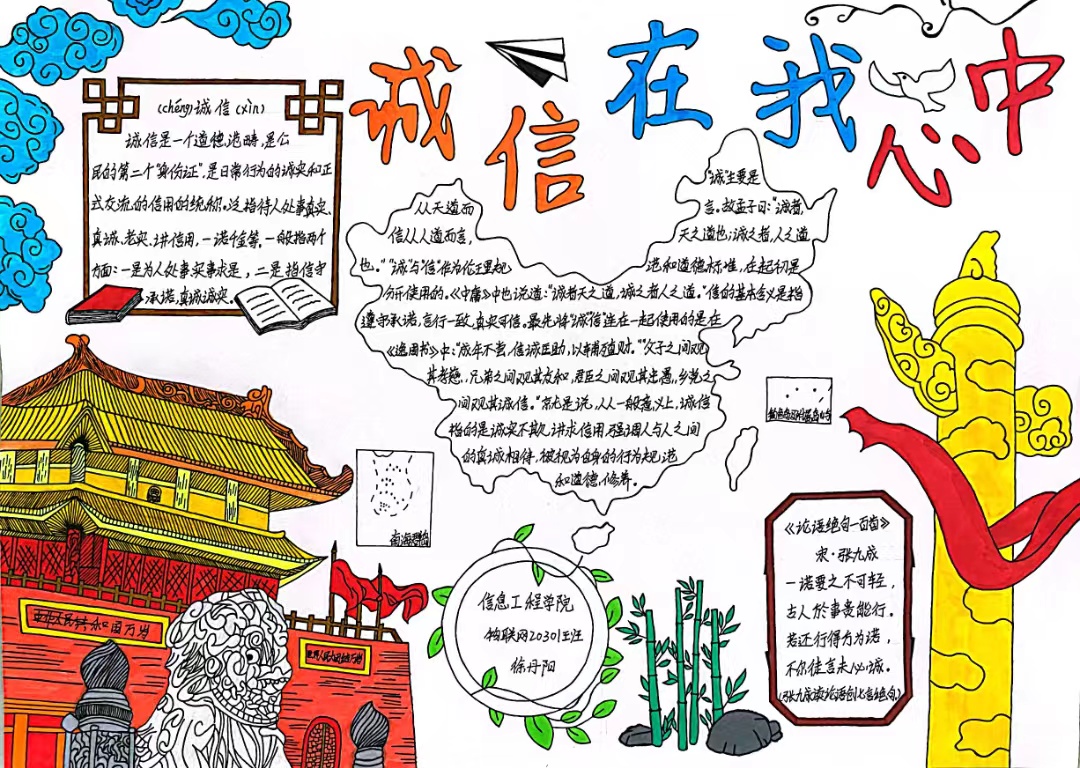 诚信在我心中
(chéng)诚信(xìn)
诚信是一个道德范畴,是公
民的第二个"身份证",是日常行为的诚实和正
式交流的信用的统称。泛指待人处事真实、
真诚、老实、讲信用,一诺千金等。一般指两个
方面:一是为人处事实事求是,二是指信守
承诺,真诚诚实。
从天道而
信从人道而言,
也。""诚"与"信"作为伦理规
分开使用的。《中庸》中也说道:"诚者天之道,诚之者人之道。"
遵守承诺,言行一致,真实可信。最先将"诚信"连在一起使用的是在
《逸周书》中:"成年不尝,信诚匡助,以辅殖财。""父子之间观
其孝慈,兄弟之间观其友和,君臣之间观其忠愚,乡党之
间观其诚信。"就是说,从一般意义上,诚信
指的是诚实不欺,讲求信用,强调人与人之间
的真诚相待,被视为自身的行为规范
和道德修养。
"诚"主要是
言。故孟子曰:"诚者,
天之道也;诚之者,人之道
范和道德标准,在起初是
信的基本含义是指
南海诸岛
中华人民共和国万岁
世界人民大团结万岁
信息工程学院
物联网20301班
徐丹阳
《论语绝句一百首》
宋·张九成
一诺要之不可轻,
古人於事贵能行。
若还行得方为诺,
不尔佳言未必诚。